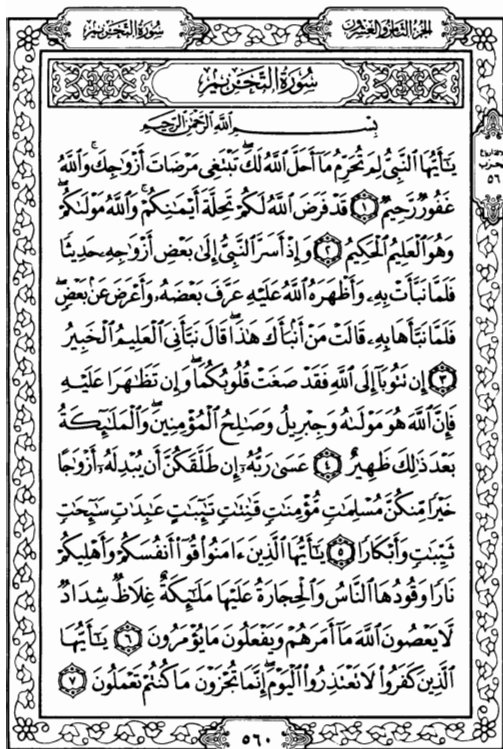 الجزء الثامن والعشرون
سورة التحريم
سُورَةُ التَّحْرِيمِ
بِسْمِ ٱللَّهِ ٱلرَّحْمَٰنِ ٱلرَّحِيمِ
يَٰٓأَيُّهَا ٱلنَّبِىُّ لِمَ تُحَرِّمُ مَآ أَحَلَّ ٱللَّهُ لَكَ تَبْتَغِى مَرْضَاتَ أَزْوَٰجِكَ وَٱللَّهُ
غَفُورٌ رَّحِيمٌ ١ قَدْ فَرَضَ ٱللَّهُ لَكُمْ تَحِلَّةَ أَيْمَٰنِكُمْ وَٱللَّهُ مَوْلَىٰكُمْ
وَهُوَ ٱلْعَلِيمُ ٱلْحَكِيمُ ٢ وَإِذْ أَسَرَّ ٱلنَّبِىُّ إِلَىٰ بَعْضِ أَزْوَٰجِهِۦ حَدِيثًا
فَلَمَّا نَبَّأَتْ بِهِۦ وَأَظْهَرَهُ ٱللَّهُ عَلَيْهِ عَرَّفَ بَعْضَهُۥ وَأَعْرَضَ عَنۢ بَعْضٍ
فَلَمَّا نَبَّأَهَا بِهِۦ قَالَتْ مَنْ أَنۢبَأَكَ هَٰذَا قَالَ نَبَّأَنِىَ ٱلْعَلِيمُ ٱلْخَبِيرُ
٣ إِن تَتُوبَآ إِلَى ٱللَّهِ فَقَدْ صَغَتْ قُلُوبُكُمَا وَإِن تَظَٰهَرَا عَلَيْهِ
فَإِنَّ ٱللَّهَ هُوَ مَوْلَىٰهُ وَجِبْرِيلُ وَصَٰلِحُ ٱلْمُؤْمِنِينَ وَٱلْمَلَٰٓئِكَةُ
بَعْدَ ذَٰلِكَ ظَهِيرٌ ٤ عَسَىٰ رَبُّهُۥٓ إِن طَلَّقَكُنَّ أَن يُبْدِلَهُۥٓ أَزْوَٰجًا
خَيْرًا مِّنكُنَّ مُسْلِمَٰتٍ مُّؤْمِنَٰتٍ قَٰنِتَٰتٍ تَٰٓئِبَٰتٍ عَٰبِدَٰتٍ سَٰٓئِحَٰتٍ
ثَيِّبَٰتٍ وَأَبْكَارًا ٥ يَٰٓأَيُّهَا ٱلَّذِينَ ءَامَنُوا۟ قُوٓا۟ أَنفُسَكُمْ وَأَهْلِيكُمْ
نَارًا وَقُودُهَا ٱلنَّاسُ وَٱلْحِجَارَةُ عَلَيْهَا مَلَٰٓئِكَةٌ غِلَاظٌ شِدَادٌ
لَّا يَعْصُونَ ٱللَّهَ مَآ أَمَرَهُمْ وَيَفْعَلُونَ مَا يُؤْمَرُونَ ٦ يَٰٓأَيُّهَا
ٱلَّذِينَ كَفَرُوا۟ لَا تَعْتَذِرُوا۟ ٱلْيَوْمَ إِنَّمَا تُجْزَوْنَ مَا كُنتُمْ تَعْمَلُونَ ٧
الحزب
٥٦
٥٦٠